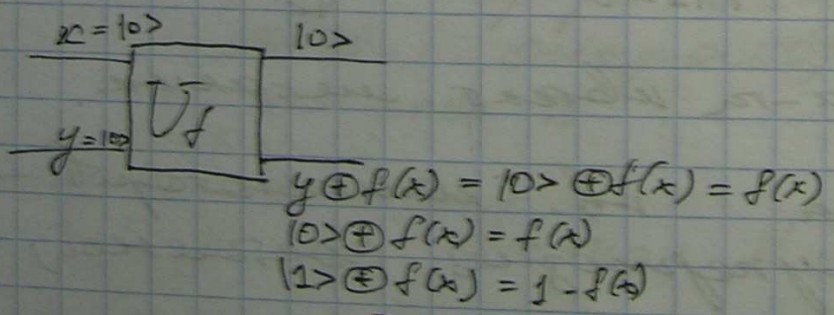 x = |0>
|0>
U_f
y = |0>
y ⊕ f(x) = |0> ⊕ f(x) = f(x)
|0> ⊕ f(x) = f(x)
|1> ⊕ f(x) = 1 - f(x)